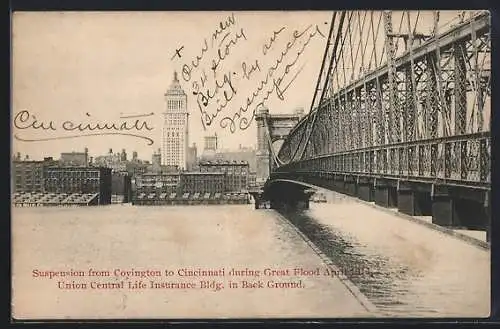 Cincinnati
+ Our new
34 story
Bldg.
Built by an
Insurance
Company
Suspension from Covington to Cincinnati during Great Flood April
Union Central Life Insurance Bldg. in Back Ground.